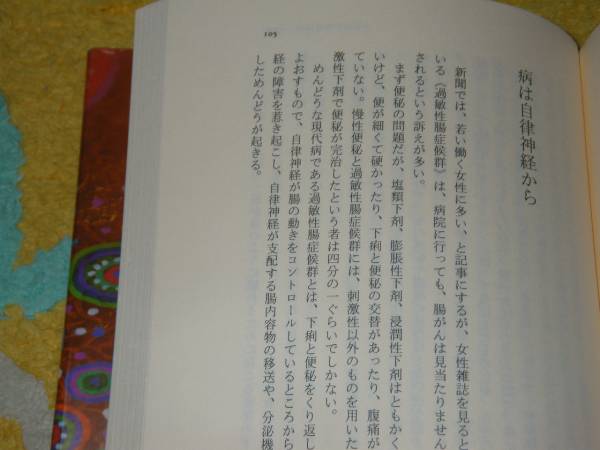 105
病は自律神経から
新聞では、若い働く女性に多い、と記事にするが、女性雑誌を見ると
いる《過敏性腸症候群》は、病院に行っても、腸がんは見当たりません
されるという訴えが多い。
まず便秘の問題だが、塩類下剤、膨脹性下剤、浸潤性下剤はともかく
いけど、便が細くて硬かったり、下痢と便秘の交替があったり、腹痛が
ていない。慢性便秘と過敏性腸症候群には、刺激性以外のものを用いた
激性下剤で便秘が完治したという者は四分の一ぐらいでしかない。
めんどうな現代病である過敏性腸症候群とは、下痢と便秘をくり返し
よおすもので、自律神経が腸の動きをコントロールしているところから
経の障害を惹き起こし、自律神経が支配する腸内容物の移送や、分泌機
しためんどうが起きる。